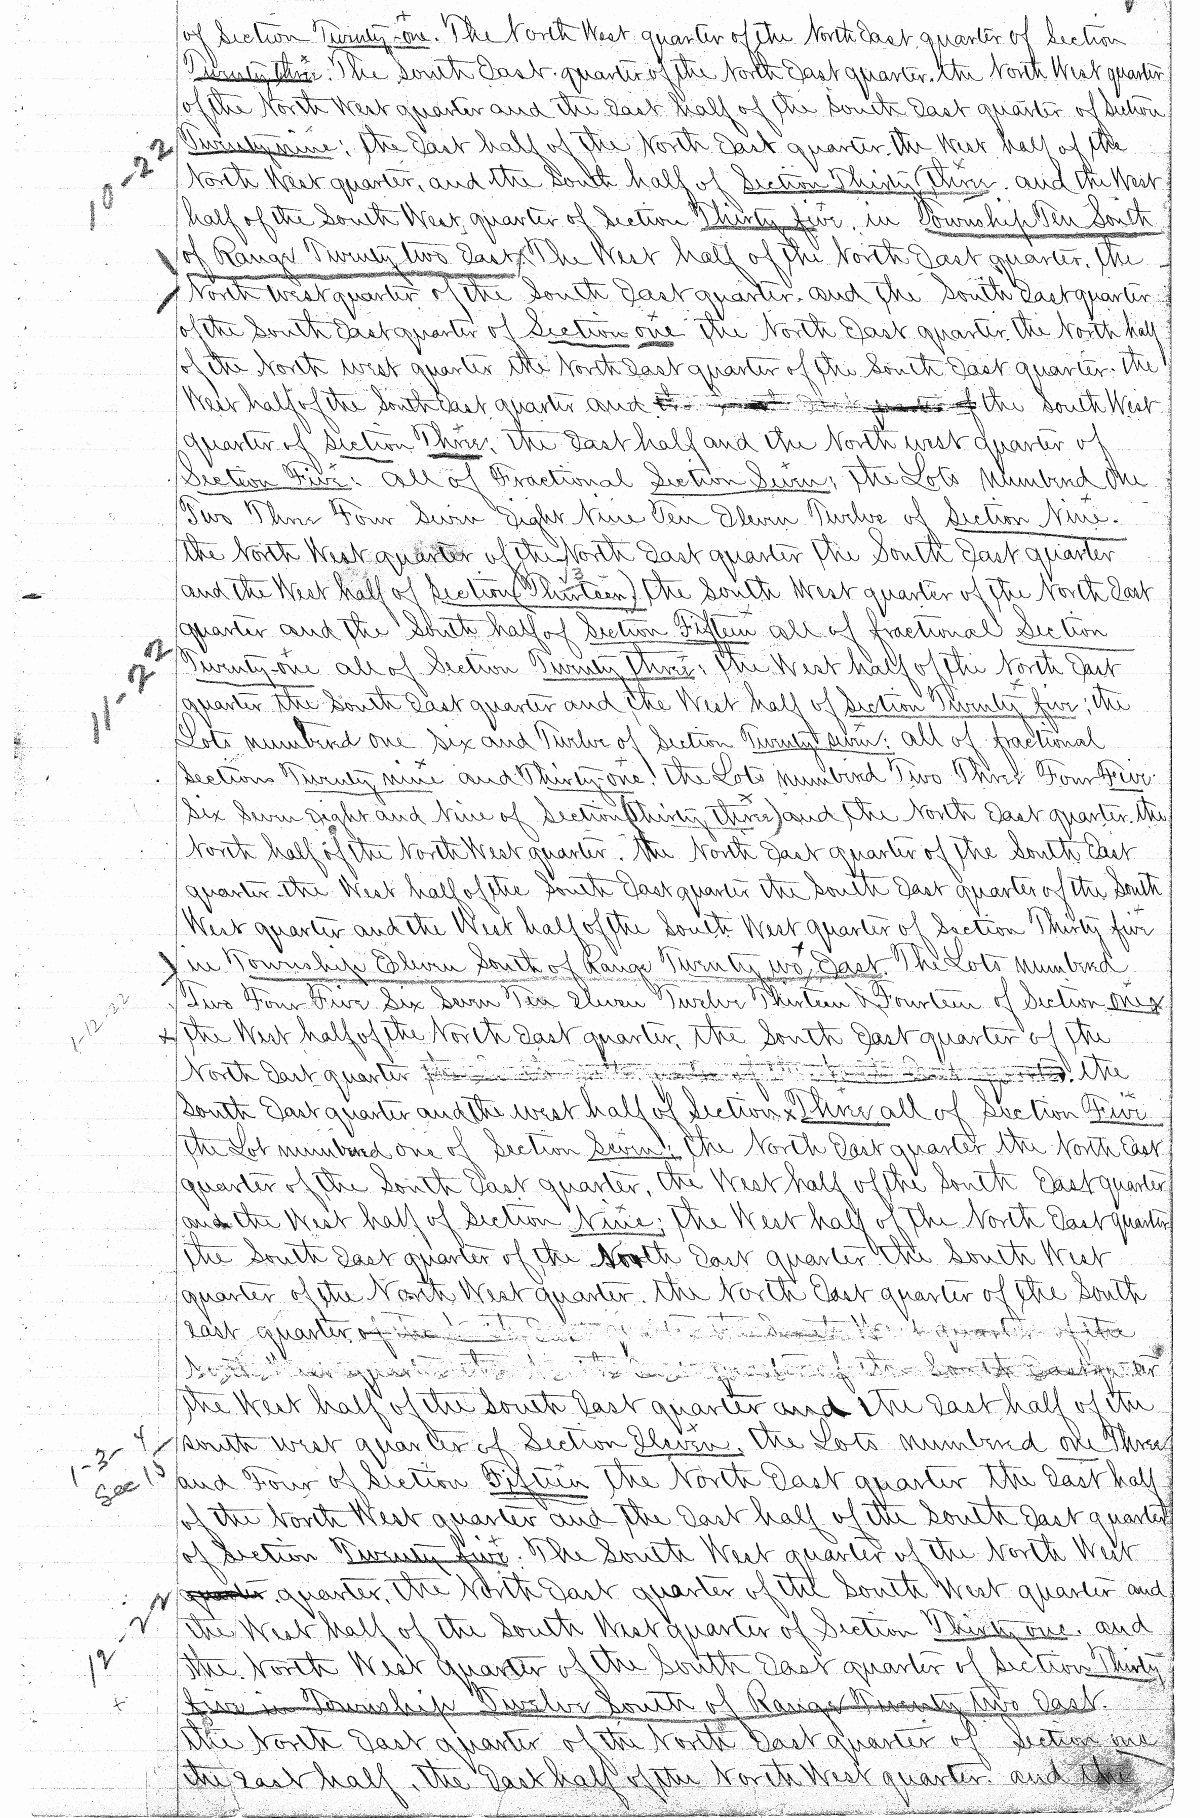 of Section Twenty-one. The North West quarter of the North East quarter of Section
Twenty three. The South East quarter of the North East quarter. the North West quarter
of the North West quarter and the East half of the South East quarter of Section
Twenty nine; the East half of the North East quarter. the West half of the
10-22
North West quarter, and the South half of Section Thirty three. and the West
half of the South West quarter of Section Thirty five, in Township Ten South
of Range Twenty two East. The West half of the North East quarter, the
North West quarter of the South East quarter. and the South East quarter
of the South East quarter of Section one the North East quarter. the North half
of the North west quarter the North East quarter of the South East quarter. the
West half of the South East quarter and the South West
quarter of Section Three, the East half and the North west quarter of
Section Five; all of Fractional Section Seven; the Lots numbered One
Two Three Four Seven Eight Nine Ten Eleven Twelve of Section Nine.
the North West quarter of the North East quarter the South East quarter
and the West half of Section (Thirteen) the South West quarter of the North East
13
quarter and the South half of Section Fifteen all of fractional Section
11-22
Twenty-one all of Section Twenty three; the West half of the North East
quarter the South East quarter and the West half of Section Twenty five; the
Lots numbered one six and Twelve of Section Twenty seven; all of fractional
Sections Twenty nine and Thirty-one! the Lots numbered Two Three Four Five
Six Seven Eight and Nine of Section (Thirty three) and the North East quarter. the
North half of the North West quarter. the North East quarter of the South East
quarter. the West half of the South East quarter the South East quarter of the South
West quarter and the West half of the South West quarter of Section Thirty five
in Township Eleven South of Range Twenty two East. The Lots numbered
1-12-22
Two Four Five Six Seven Ten Eleven Twelve Thirteen & Fourteen of Section one
x the West half of the North East quarter, the South East quarter of the
North East quarter the
South East quarter and the west half of Section x Three all of Section Five
the Lot numbered one of Section Seven; the North East quarter the North East
quarter of the South East quarter, the West half of the South East quarter
and the West half of Section Nine; the West half of the North East quarter
the South East quarter of the North East quarter the South West
quarter of the North West quarter. the North East quarter of the South
East quarter of the South West quarter of the
quarter of the South East quarter
the West half of the South East quarter and the East half of the
south west quarter of Section Eleven, the Lots numbered one Three
1-3-4
Sec 15
and Four of Section Fifteen the North East quarter the East half
of the North West quarter and the East half of the South East quarter
of Section Twenty five. The South West quarter of the North West
quarter, quarter, the North East quarter of the South West quarter and
12-22
the West half of the South West quarter of Section Thirty one. and
the North West quarter of the South East quarter of Section Thirty
five in Township Twelve South of Range Twenty two East.
the North East quarter of the North East quarter of Section one
the East half, the East half of the North West quarter. and the